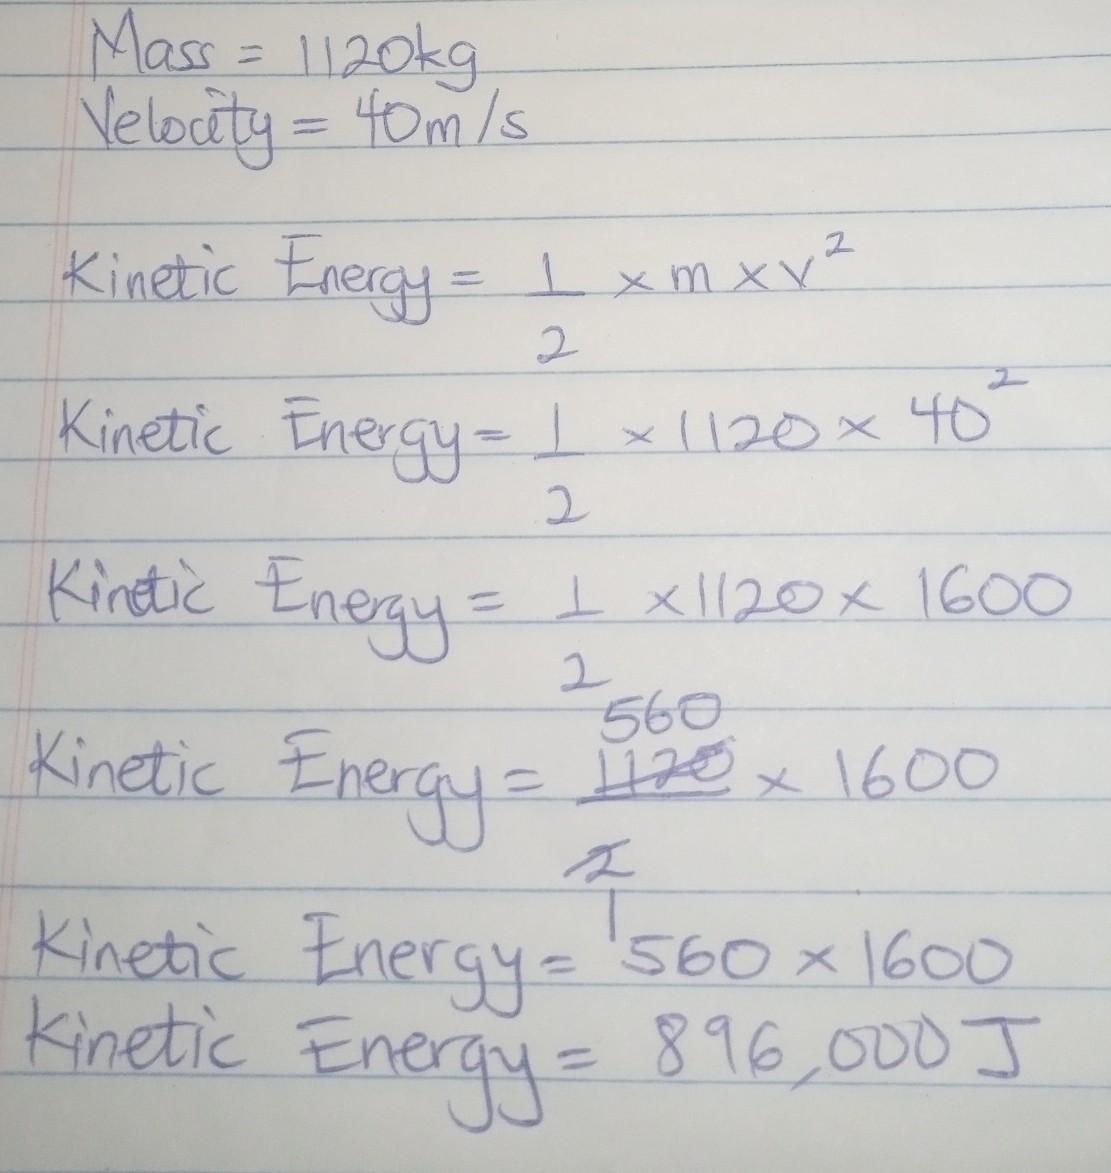 Mass = 1120kg
Velocity = 40m/s
Kinetic Energy = 1/2 × m × v²
Kinetic Energy = 1/2 × 1120 × 40²
Kinetic Energy = 1/2 × 1120 × 1600
560
Kinetic Energy = 1120/2 × 1600
1
Kinetic Energy = 560 × 1600
Kinetic Energy = 896,000 J